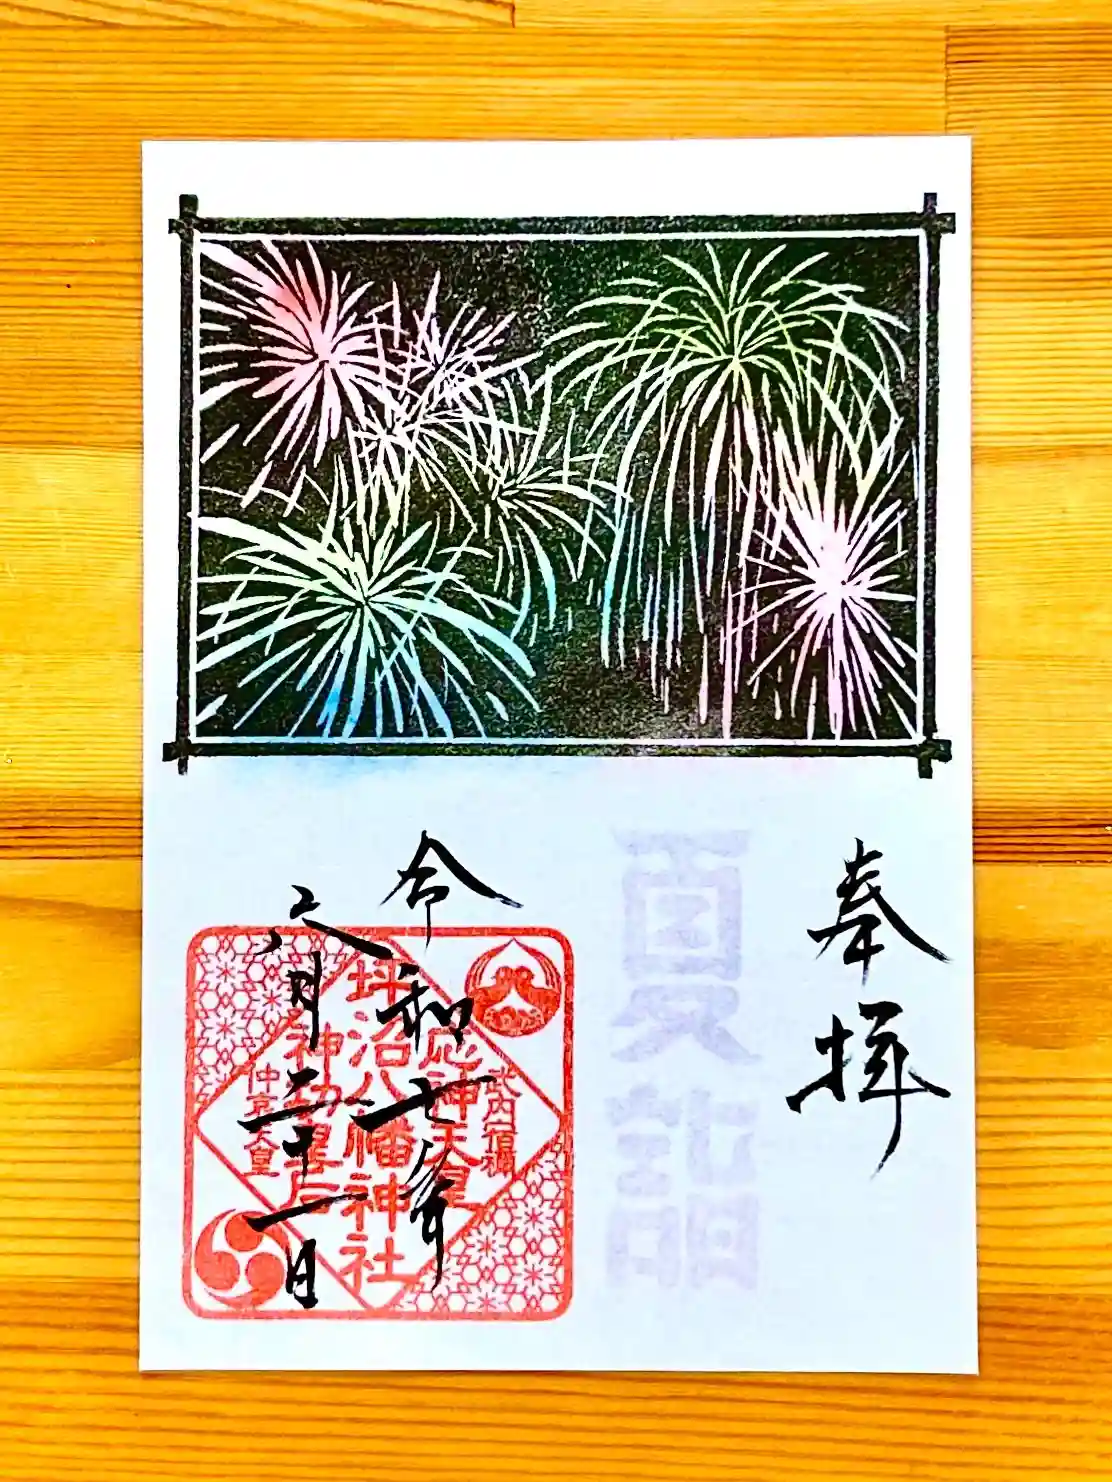 奉拝
夏詣
令和七年
八月二十一日
武内宿禰
応神天皇
坪沼八幡神社
神功皇后
仲哀天皇